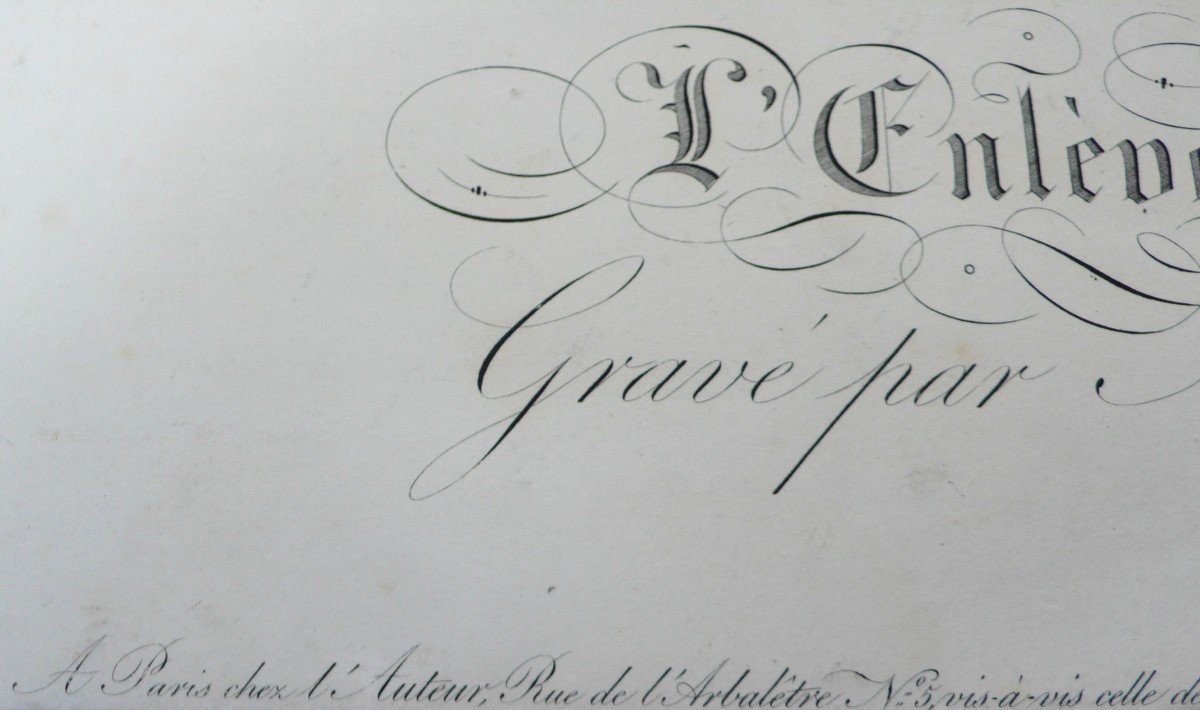 L'Enlève
Gravé par
A Paris chez l'Auteur, Rue de l'Arbalêtre N.º 5, vis-à-vis celle de